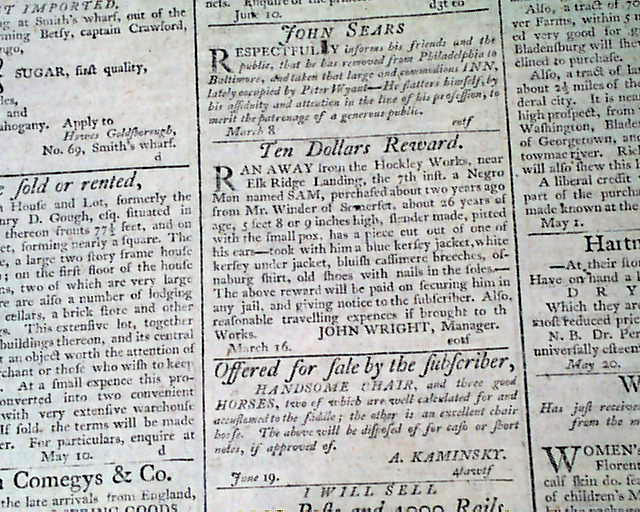 T IMPORTED,
ng at Smith's wharf, out of the
ming Betsy, captain Crawford,
SUGAR, firſt quality,
and
ahogany. Apply to
Howes Goldſborough,
No. 69, Smith's wharf.
d
e ſold or rented,
House and Lot, formerly the
nry D. Gough, eſq. ſituated in
thereon fronts 77½ feet, and on
et, forming nearly a ſquare. The
e, a large two ſtory frame houſe
; on the firſt floor of the houſe
ns, two of which are very large
re are alſo a number of lodging
cellars, a brick ſtore and other
s. This extenſive lot, together
buildings thereon, and its central
an object worth the attention of
rchant or thoſe who wiſh to keep
At a ſmall expence this pro-
onverted into two convenient
with very extenſive warehouſe
If ſold, the terms will be made
er. For particulars, enquire at
May 10. d
Comegys & Co.
the late arrivals from England,
GOODS
June 10. d3t eo
JOHN SEARS
RESPECTFULLY informs his friends and the
public, that he has removed from Philadelphia to
Baltimore, and taken that large and commodious INN,
lately occupied by Peter Wyant—He flatters himſelf, by
his aſſiduity and attention in the line of his profeſſion, to
merit the patronage of a generous public.
March 8 eotf
Ten Dollars Reward.
RAN AWAY from the Hockley Works, near
Elk Ridge Landing, the 7th inſt. a Negro
Man named SAM, purchaſed about two years ago
from Mr. Winder of Somerſet, about 26 years of
age, 5 feet 8 or 9 inches high, ſlender made, pitted
with the ſmall pox, has a piece cut out of one of
his ears—took with him a blue kerſey jacket, white
kerſey under jacket, bluiſh caſſimere breeches, oſ-
naburg ſhirt, old ſhoes with nails in the ſoles.—
The above reward will be paid on ſecuring him in
any jail, and giving notice to the ſubſcriber. Alſo,
reaſonable travelling expences if brought to th
Works. JOHN WRIGHT, Manager.
March 16. eotf
Offered for ſale by the ſubſcriber,
HANDSOME CHAIR, and three good
HORSES, two of which are well calculated for and
accuſtomed to the ſaddle; the other is an excellent chair
horſe. The above will be diſpoſed of for caſh or ſhort
notes, if approved of.
A. KAMINSKY.
June 19. d4wtf
I WILL SELL
Poſts and 4000 Rails,
Alſo, a tract of 70
ver Farms, within 5
ed very good for g
Bladenſburg will ſhe
clined to purchaſe.
Alſo, a tract of la
about 2½ miles of the
deral city. It is nea
high proſpect, from
Waſhington, Blade
of Georgetown, and
towmac river. Ric
will alſo ſhew this l
A liberal credit
part of the purcha
made known at the
May 1.
Hartn
—At their ſto
Have on hand a
D R Y
Which they ar
moſt reduced pric
N. B. Dr. Per
univerſally eſteem
May 20.
W
Has juſt receive
from the m
WOMEN's
Floren
calf ſkin do. ſe
of children's M
by the package